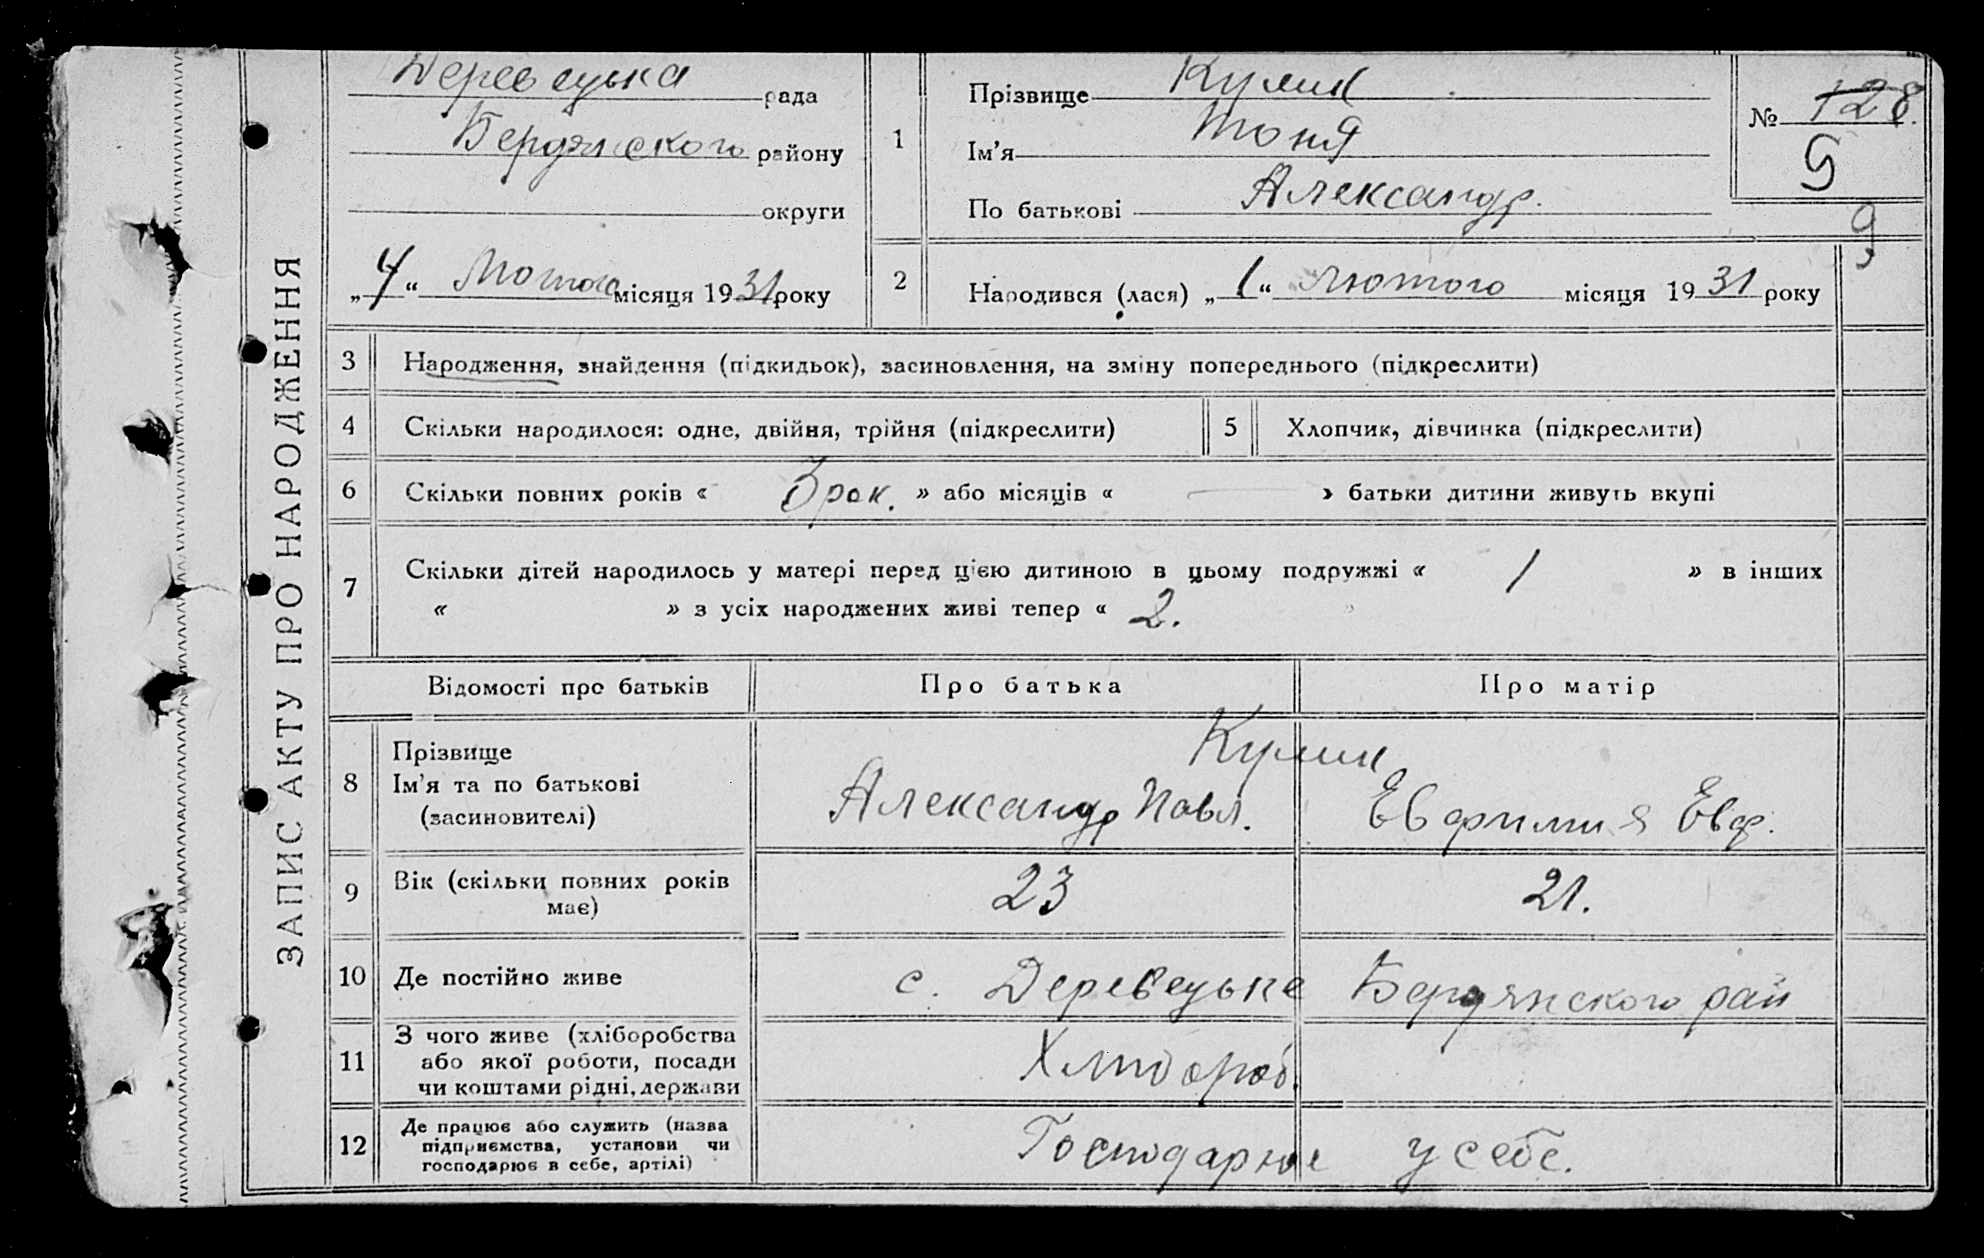 ЗАПИС АКТУ ПРО НАРОДЖЕННЯ
Деревецька рада
Бердянского району
округи
„4“ Лютого місяця 1931 року
1
Прізвище Кулик
Ім'я Тоня
По батькові Александр.
№ 128.
9
9
2
Народився (лася) „1“ Лютого місяця 1931 року
3 Народження, знайдення (підкидьок), засиновлення, на зміну попереднього (підкреслити)
4 Скільки народилося: одне, двійня, трійня (підкреслити) 5 Хлопчик, дівчинка (підкреслити)
6 Скільки повних років « 3 рок. » або місяців « — » батьки дитини живуть вкупі
7 Скільки дітей народилось у матері перед цією дитиною в цьому подружжі « 1 » в інших
« » з усіх народжених живі тепер « 2. »
Відомості про батьків Про батька Про матір
8 Прізвище
Ім'я та по батькові
(засиновителі)
Кулик
Александр Павл. Евфимия Евф.
9 Вік (скільки повних років
має)
23 21.
10 Де постійно живе с. Деревецьке Бердянского рай
11 З чого живе (хліборобства
або якої роботи, посади
чи коштами рідні, держави
Хлибороб.
12 Де працює або служить (назва
підприємства, установи чи
господарює в себе, артілі)
Господарює у себе.